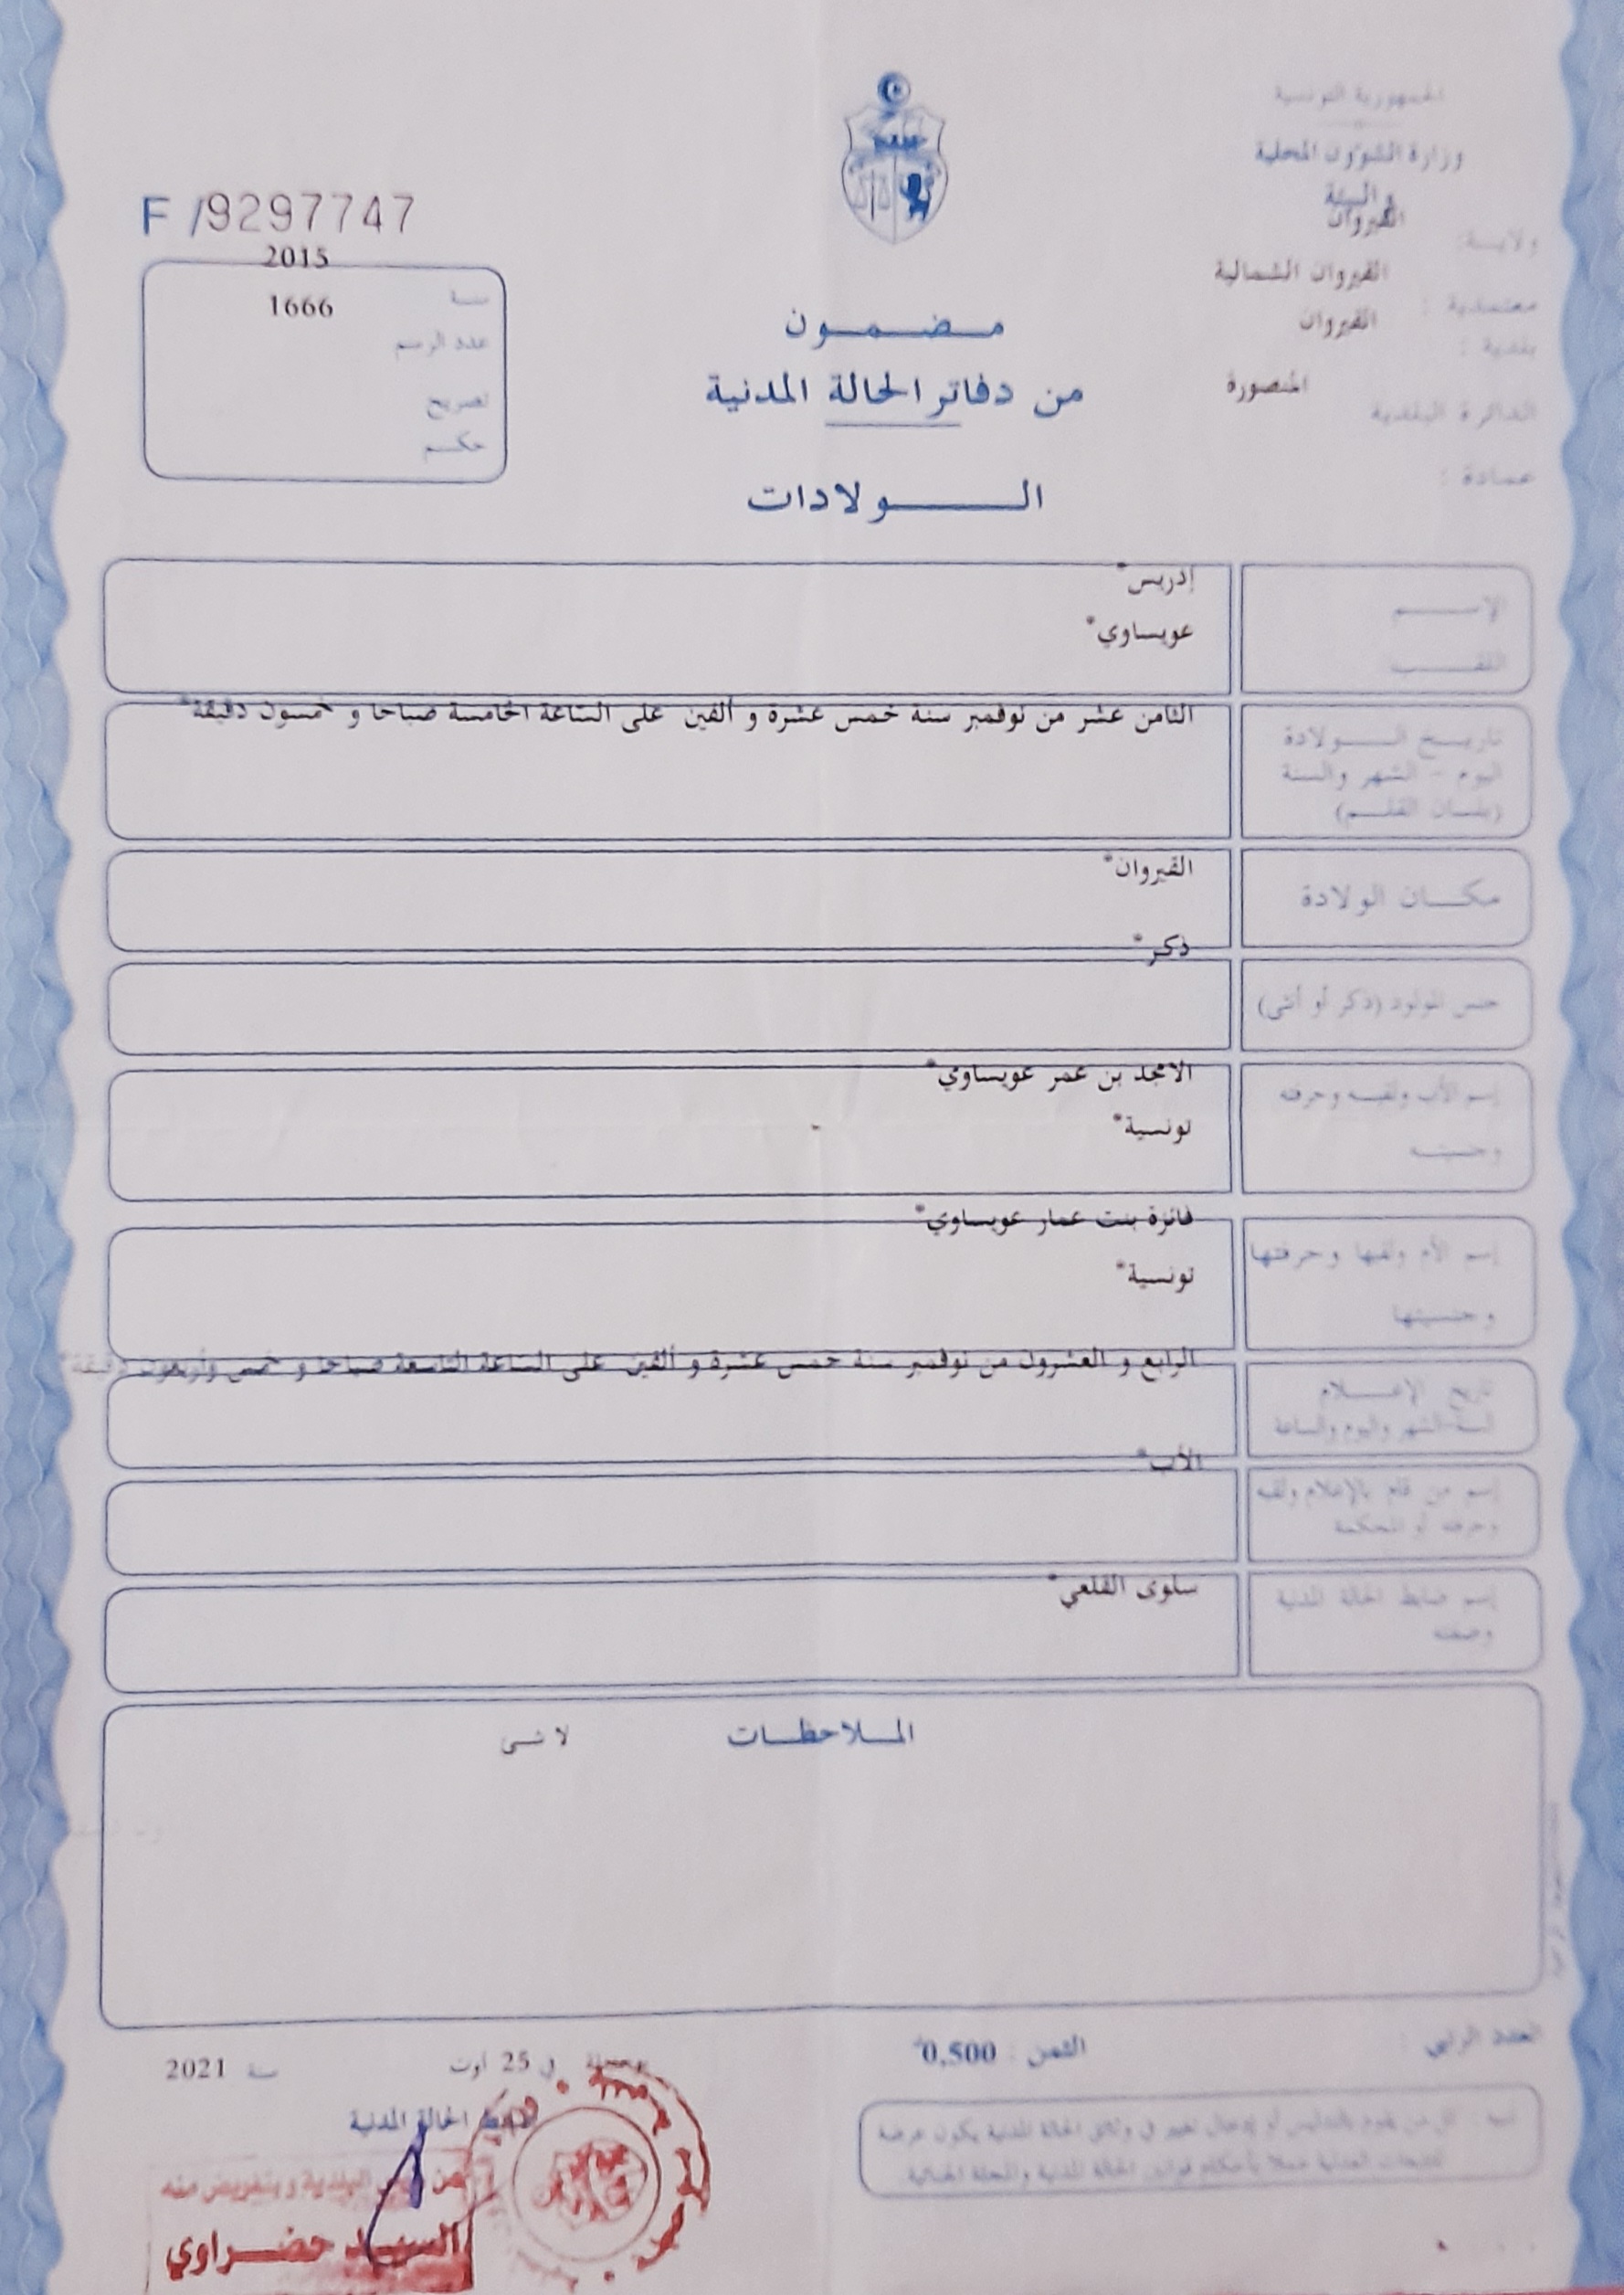 الجمهورية التونسية
وزارة الشؤون المحلية
و البيئة
ولاية: القيروان
معتمدية : القيروان الشمالية
بلدية : القيروان
الدائرة البلدية المنصورة
عمادة :
F /9297747
سنة 2015
عدد الرسم 1666
تصريح
حكم
مضمون
من دفاتر الحالة المدنية
الولادات
الإسم إدريس*
اللقب عويساوي*
تاريخ الولادة الثامن عشر من نوفمبر سنة خمس عشرة و ألفين على الساعة الخامسة صباحا و خمسون دقيقة*
اليوم - الشهر والسنة
(بلسان القلم)
مكان الولادة القيروان*
جنس المولود (ذكر أو أنثى) ذكر*
إسم الأب ولقبه وحرفته الامجد بن عمر عويساوي*
وجنسيته تونسية*
إسم الأم ولقبها وحرفتها فائزة بنت عمار عويساوي*
وجنسيتها تونسية*
تاريخ الإعلام الرابع و العشرون من نوفمبر سنة خمس عشرة و ألفين على الساعة التاسعة صباحا و خمس وأربعون دقيقة*
السنة الشهر واليوم والساعة
إسم من قام بالإعلام ولقبه الأب*
وحرفته أو المحكمة
إسم ضابط الحالة المدنية سلوى القلعي*
وصفته
الملاحظات لا شى
العدد الرتبي :
الثمن : 0,500
في 25 أوت سنة 2021
ضابط الحالة المدنية
تنبيه : كل من يقوم بالتدليس أو إدخال تغيير في وثائق الحالة المدنية يكون عرضة
للتتبعات العدلية عملا بأحكام قوانين الحالة المدنية والمجلة الجنائية.
عن البلدية و بتفويض منه
السيد خضراوي